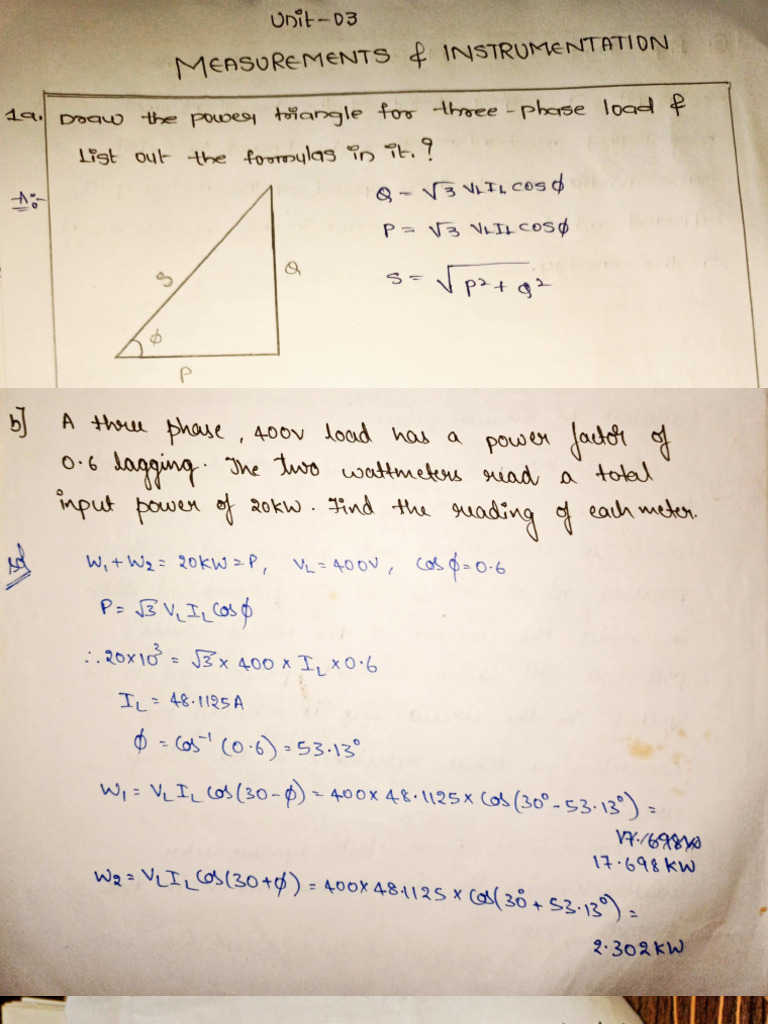 Unit-03
MEASUREMENTS & INSTRUMENTATION
1a. Draw the power triangle for three-phase load &
List out the formulas in it.?
A:-
Q = √3 VLIL cosϕ
P = √3 VLIL cosϕ
S = √P²+Q²
S
Q
ϕ
P
b] A three phase, 400V load has a power factor of
0.6 lagging. The two wattmeters read a total
input power of 20KW. Find the reading of each meter.
Sol
W₁+W₂ = 20KW = P, VL = 400V, Cosϕ = 0.6
P = √3 VL IL Cosϕ
∴ 20×10³ = √3 × 400 × IL × 0.6
IL = 48.1125A
ϕ = Cos⁻¹ (0.6) = 53.13°
W₁ = VL IL Cos(30-ϕ) = 400 × 48.1125 × Cos(30°-53.13°) =
17.698KW
W₂ = VL IL Cos(30+ϕ) = 400×48.1125 × Cos(30°+53.13°) =
2.302KW